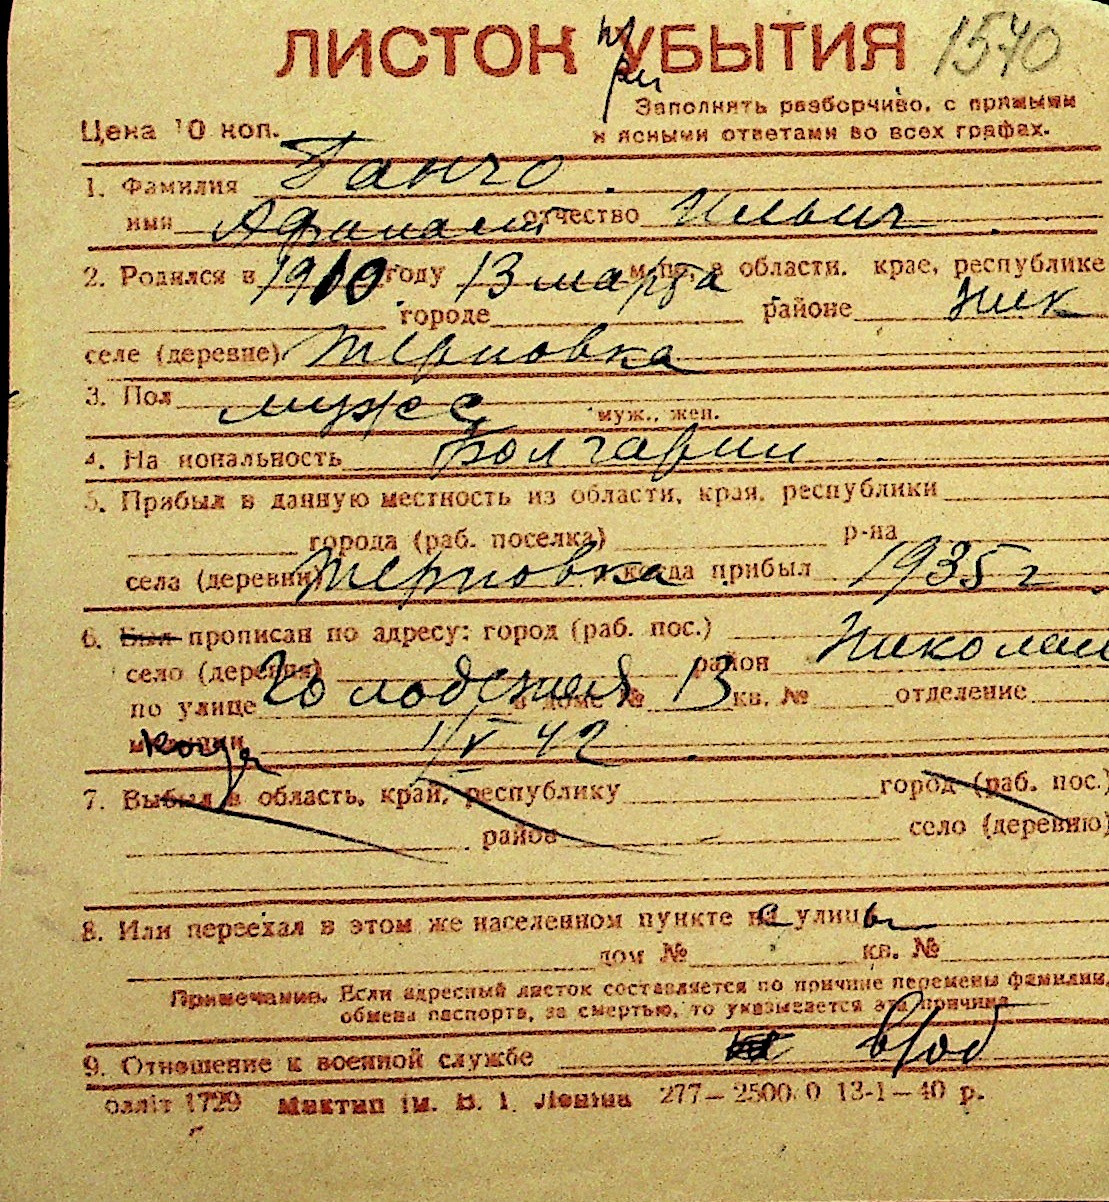 ЛИСТОК УБЫТИЯ 1540
при
Заполнять разборчиво, с прямыми
Цена 10 коп. и ясными ответами во всех графах.
1. Фамилия Ганчо.
имя Афанасий отчество Ильич.
2. Родился в 1910 году 13 марта м-це, в области, крае, республике
городе районе Ник
селе (деревне) Терновка
3. Пол мужс муж., жен.
4. На иональность Болгарин
5. Прибыл в данную местность из области, края, республики
города (раб. поселка) р-на
села (деревни) Терновка когда прибыл 1935 г.
6. Был прописан по адресу: город (раб. пос.)
село (деревня) район Николаев
по улице в доме № 13 кв. № отделение
когда 1/V 42.
7. Выбыл в область, край, республику город (раб. пос.)
район село (деревню)
8. Или переехал в этом же населенном пункте с улицы
дом № кв. №
Примечание. Если адресный листок составляется по причине перемены фамилии,
обмена паспорта, за смертью, то указывается эта причина
9. Отношение к военной службе в/об
Оллiт 1729 Миктип iм. В. I. Ленiна 277—2500.0 13-1—40 р.